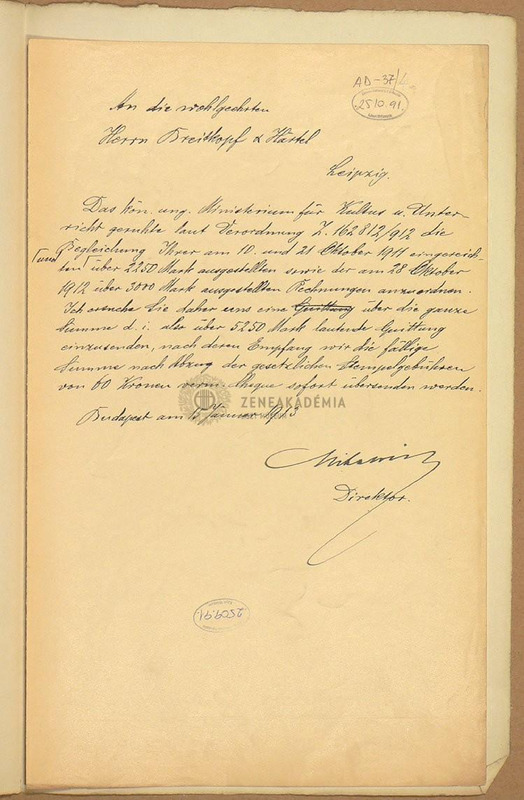 AD-37/
25091.
An die wohlgeehrten
Herrn Breitkopf & Härtel
Leipzig.
Das kön. ung. Ministerium für Kultus u. Unter-
richt geruhte laut Verordnung Z. 162812/912 die
Begleichung Ihrer am 10. und 21 Oktober 1911 eingereich-
ten und über 2250 Mark ausgestellten sowie der am 28 Oktober
1912 über 3000 Mark ausgestellten Rechnungen anzuordnen.
Ich ersuche Sie daher uns eine Quittung über die ganze
Summe d. i. also über 5250 Mark lautende Quittung
einzusenden, nach deren Empfang wir die fällige
Summe nach Abzug der gesetzlichen Stempelgebühren
von 60 Kronen verm. Cheque sofort übersenden werden.
ZENEAKADÉMIA
Budapest am Januar 1913
Direktor.
25091.